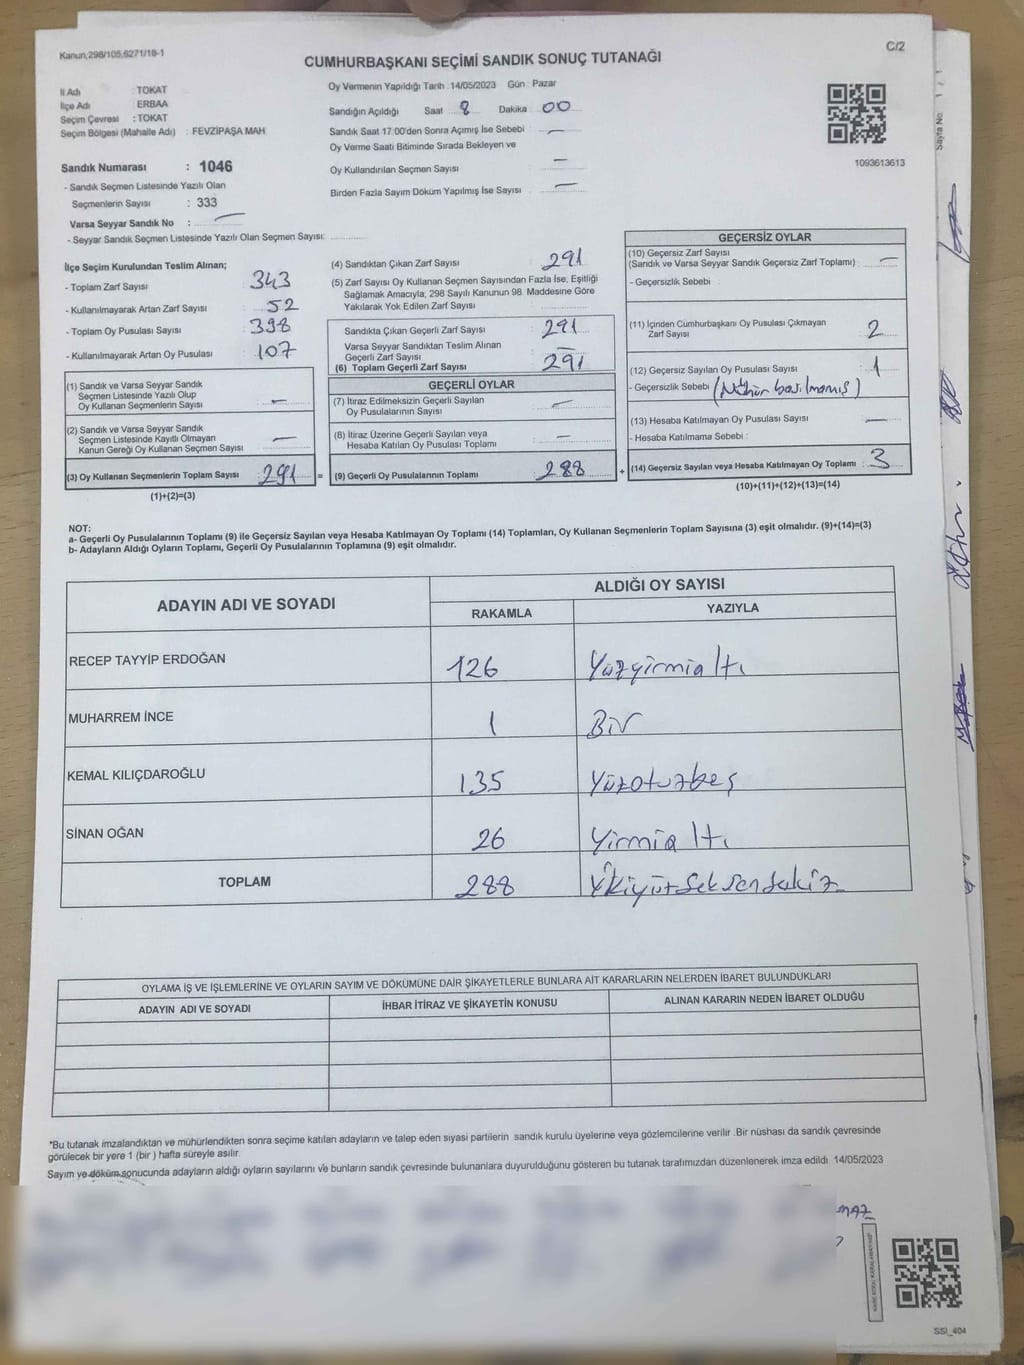 Kanun;298/105,6271/18-1
C/2
CUMHURBAŞKANI SEÇİMİ SANDIK SONUÇ TUTANAĞI
İl Adı : TOKAT
İlçe Adı : ERBAA
Seçim Çevresi : TOKAT
Seçim Bölgesi (Mahalle Adı) : FEVZİPAŞA MAH
Sandık Numarası : 1046
- Sandık Seçmen Listesinde Yazılı Olan
Seçmenlerin Sayısı : 333
Varsa Seyyar Sandık No : —
- Seyyar Sandık Seçmen Listesinde Yazılı Olan Seçmen Sayısı:
Oy Vermenin Yapıldığı Tarih : 14/05/2023 Gün : Pazar
Sandığın Açıldığı Saat 8 Dakika 00
Sandık Saat 17:00'den Sonra Açımış İse Sebebi —
Oy Verme Saati Bitiminde Sırada Bekleyen ve
Oy Kullandırılan Seçmen Sayısı —
Birden Fazla Sayım Döküm Yapılmış İse Sayısı —
1093613613
Sayfa No: 1 / 1
İlçe Seçim Kurulundan Teslim Alınan;
- Toplam Zarf Sayısı : 343
- Kullanılmayarak Artan Zarf Sayısı : 52
- Toplam Oy Pusulası Sayısı : 398
- Kullanılmayarak Artan Oy Pusulası : 107
(1) Sandık ve Varsa Seyyar Sandık
Seçmen Listesinde Yazılı Olup
Oy Kullanan Seçmenlerin Sayısı —
(2) Sandık ve Varsa Seyyar Sandık
Seçmen Listesinde Kayıtlı Olmayan
Kanun Gereği Oy Kullanan Seçmen Sayısı —
(3) Oy Kullanan Seçmenlerin Toplam Sayısı 291 =
(1)+(2)=(3)
(4) Sandıktan Çıkan Zarf Sayısı 291
(5) Zarf Sayısı Oy Kullanan Seçmen Sayısından Fazla İse, Eşitliği
Sağlamak Amacıyla, 298 Sayılı Kanunun 98. Maddesine Göre
Yakılarak Yok Edilen Zarf Sayısı
Sandıkta Çıkan Geçerli Zarf Sayısı 291
Varsa Seyyar Sandıktan Teslim Alınan
Geçerli Zarf Sayısı —
(6) Toplam Geçerli Zarf Sayısı 291
GEÇERLİ OYLAR
(7) İtiraz Edilmeksizin Geçerli Sayılan
Oy Pusulalarının Sayısı —
(8) İtiraz Üzerine Geçerli Sayılan veya
Hesaba Katılan Oy Pusulası Toplamı —
(9) Geçerli Oy Pusulalarının Toplamı 288 +
GEÇERSİZ OYLAR
(10) Geçersiz Zarf Sayısı
(Sandık ve Varsa Seyyar Sandık Geçersiz Zarf Toplamı) : —
- Geçersizlik Sebebi :
(11) İçinden Cumhurbaşkanı Oy Pusulası Çıkmayan
Zarf Sayısı : 2
(12) Geçersiz Sayılan Oy Pusulası Sayısı : 1
- Geçersizlik Sebebi (Mühür basılmamış)
(13) Hesaba Katılmayan Oy Pusulası Sayısı : —
- Hesaba Katılmama Sebebi :
(14) Geçersiz Sayılan veya Hesaba Katılmayan Oy Toplamı : 3
(10)+(11)+(12)+(13)=(14)
NOT:
a- Geçerli Oy Pusulalarının Toplamı (9) ile Geçersiz Sayılan veya Hesaba Katılmayan Oy Toplamı (14) Toplamları, Oy Kullanan Seçmenlerin Toplam Sayısına (3) eşit olmalıdır. (9)+(14)=(3)
b- Adayların Aldığı Oyların Toplamı, Geçerli Oy Pusulalarının Toplamına (9) eşit olmalıdır.
ADAYIN ADI VE SOYADI
ALDIĞI OY SAYISI
RAKAMLA YAZIYLA
RECEP TAYYİP ERDOĞAN 126 Yüzyirmialtı
MUHARREM İNCE 1 Bir
KEMAL KILIÇDAROĞLU 135 Yüzotuzbeş
SİNAN OĞAN 26 Yirmialtı
TOPLAM 288 İkiyüzseksensekiz
OYLAMA İŞ VE İŞLEMLERİNE VE OYLARIN SAYIM VE DÖKÜMÜNE DAİR ŞİKAYETLERLE BUNLARA AİT KARARLARIN NELERDEN İBARET BULUNDUKLARI
ADAYIN ADI VE SOYADI İHBAR İTİRAZ VE ŞİKAYETİN KONUSU ALINAN KARARIN NEDEN İBARET OLDUĞU
*Bu tutanak imzalandıktan ve mühürlendikten sonra seçime katılan adayların ve talep eden siyasi partilerin sandık kurulu üyelerine veya gözlemcilerine verilir .Bir nüshası da sandık çevresinde
görülecek bir yere 1 (bir ) hafta süreyle asılır.
Sayım ve döküm sonucunda adayların aldığı oyların sayılarını ve bunların sandık çevresinde bulunanlara duyurulduğunu gösteren bu tutanak tarafımızdan düzenlenerek imza edildi 14/05/2023
SSI_404